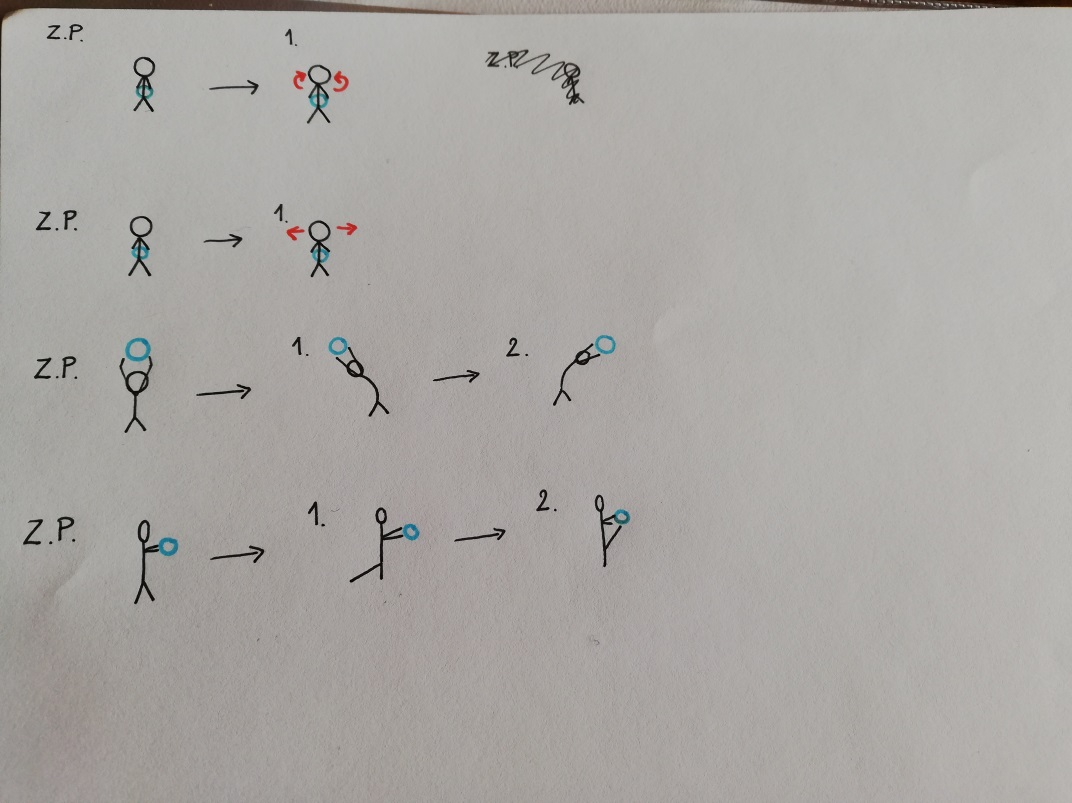 Z.P. 1.
Z.P. 1.
Z.P. 1. 2.
Z.P. 1. 2.